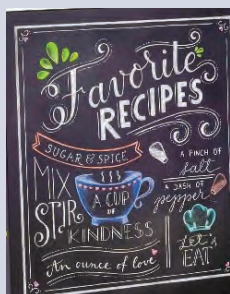 Favorite
RECIPES
SUGAR & SPICE
A PINCH OF
Salt
A DASH OF
pepper
MIX
STIR
A CUP
OF
KINDNESS
An ounce of love
Let's
EAT